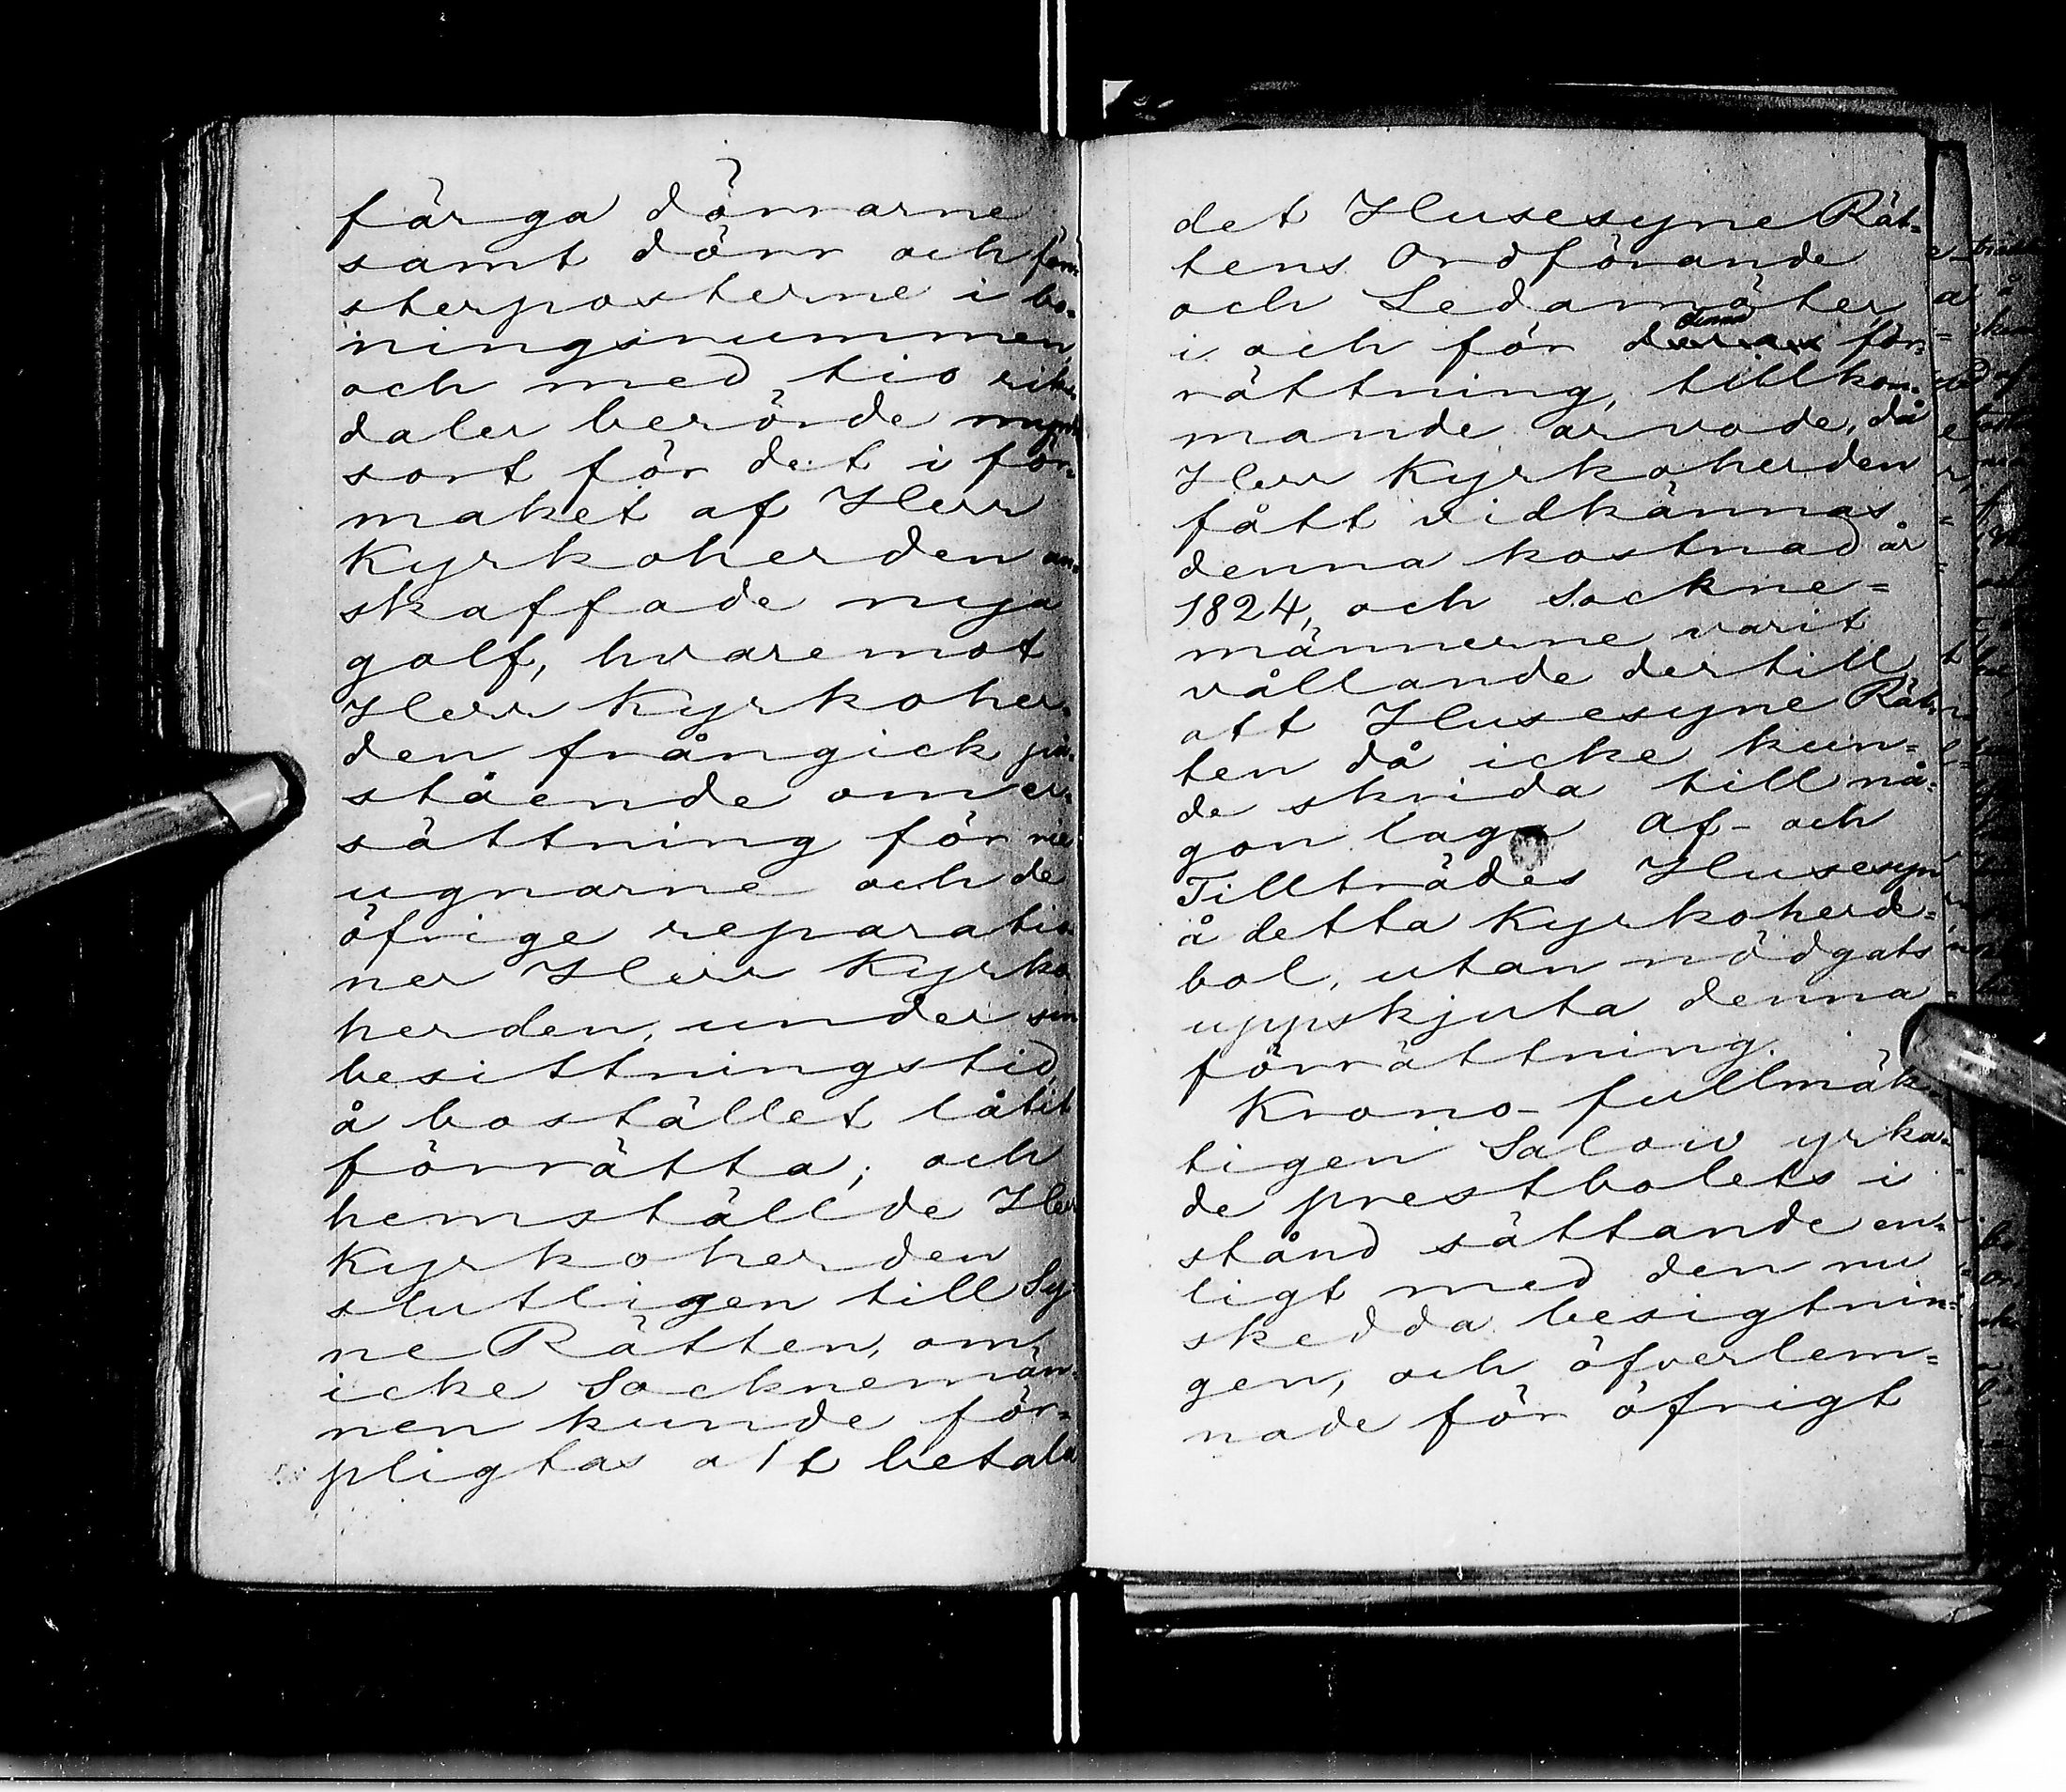 färga dörrarne
samt dörr och fön-
sterposterne i bo-
ningsrummen,
och med tio riks
daler berörde mynt
sort för det i för-
maket af Herr
Kyrkoherden an-
skaffade nya
golf, hvaremot
Herr Kyrkoher-
den frångick på-
stående om er-
sättning för rie
ugnarne och de
öfrige reparatio
ner Herr Kyrko
herden, under sin
besittningstid
å bostället låtit
förrätta; och
hemställde Herr
Kyrkoherden
slutligen till Sy
ne Rätten, om
icke Socknemän-
nen kunde för-
pligtas att betala
det Husesyne Rät-
tens Ordförande
och Ledamöter
i och för denna för-
rättning, tillkom-
mande arvode, då
Herr Kyrkoherden
fått vidkännas
denna kostnad år
1824, och Sockne=
männerne varit
vållande dertill
att Husesyne Rät-
ten då icke kun=
de skrida till nå-
gon laga Af- och
Tillträdes Husesyn
å detta Kyrkoherde=
bol, utan nödgats
uppskjuta denna
förrättning.
Krono-fullmäk
tigen Salow yrka-
de prestbolets i
stånd sättande en-
ligt med den nu
skedda besigtnin=
gen, och öfverlem=
nade för öfrigt